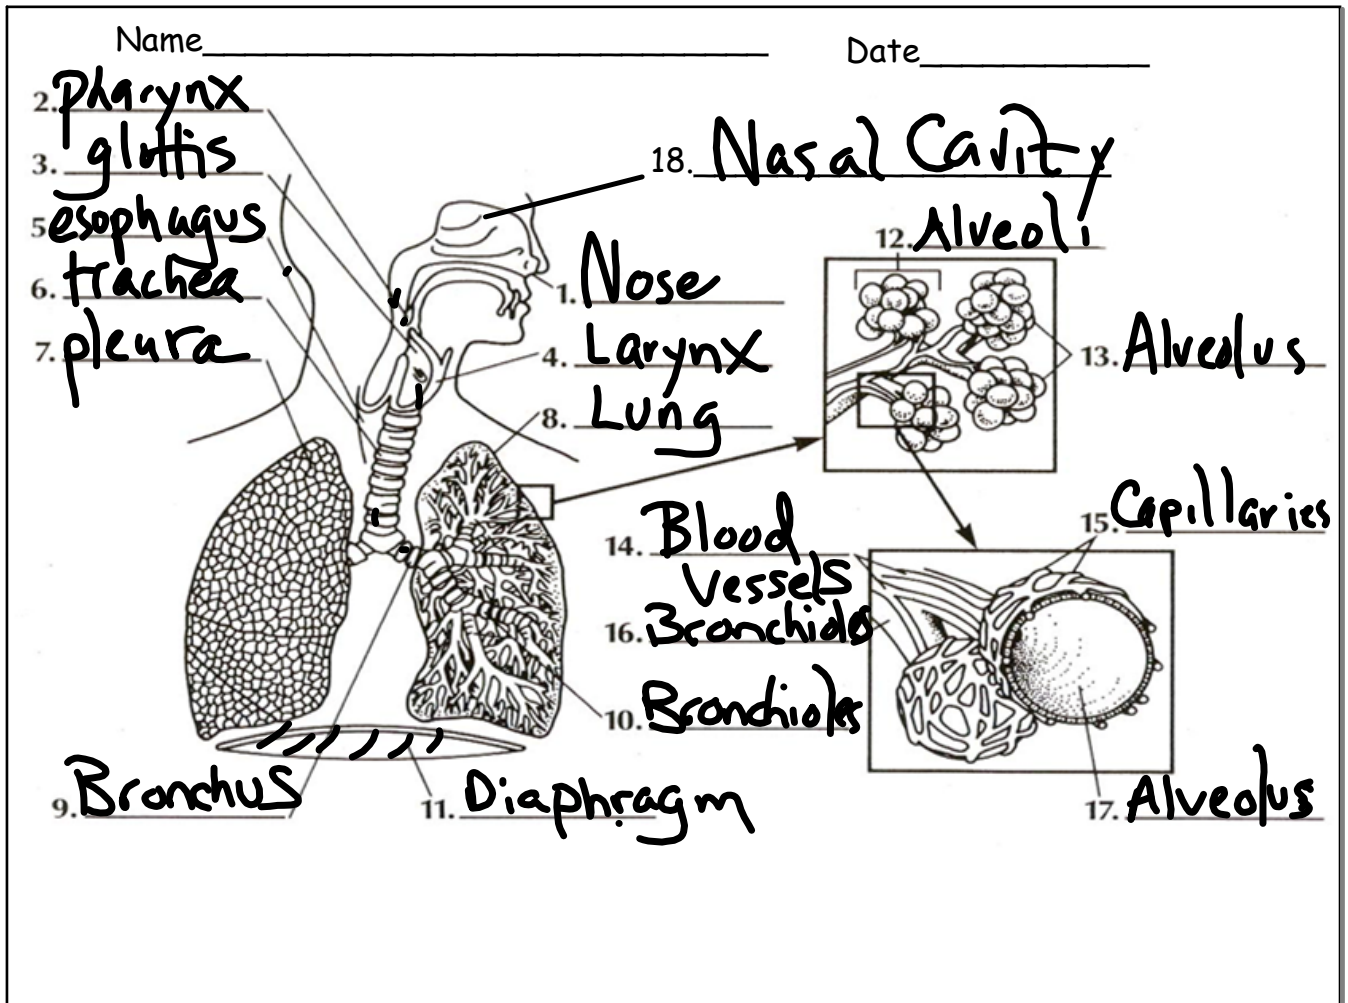 Name
Date
2. pharynx
3. glottis
5. esophagus
6. trachea
7. pleura
18. Nasal Cavity
12. Alveoli
1. Nose
4. Larynx
8. Lung
13. Alveolus
15. Capillaries
14. Blood
vessels
16. Bronchioles
10. Bronchioles
9. Bronchus
11. Diaphragm
17. Alveolus